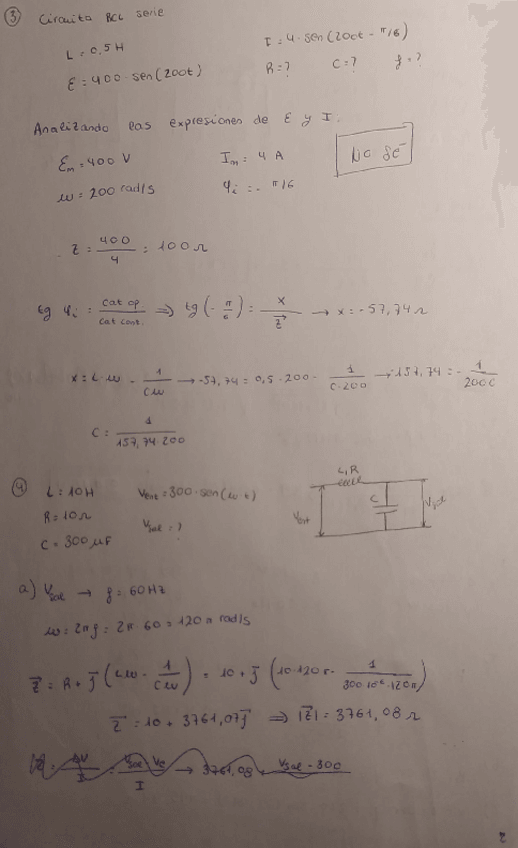 ③ Circuito RCL serie
L = 0,5H
I = 4·sen(200t - π/6)
E = 400·sen(200t)
R=? C=? f=?
Analizando las expresiones de E y I.
Em = 400 V
Im = 4 A
No sé
ω = 200 rad/s
φi = -π/6
Z = 400/4 = 100 Ω
tg φi = cat op/cat cont. ⇒ tg(-π/6) = x/Z → x = -57,74 Ω
x = L·ω - 1/Cω → -57,74 = 0,5·200 - 1/C·200 → -157,74 = -1/200C
C = 1/157,74·200
④ L = 10H
Vent = 300·sen(ωt)
L,R
R = 10Ω
C
Vsal = ?
Vent
C = 300 μF
a) Vsal → f = 60Hz
ω = 2πf = 2π·60 = 120π rad/s
Z = R + j(Lω - 1/Cω) = 10 + j(10·120π - 1/300·10⁻⁶·120π)
Z = 10 + 3761,07j ⇒ |Z| = 3761,08 Ω
3761,08 Vsal - 300
I
2